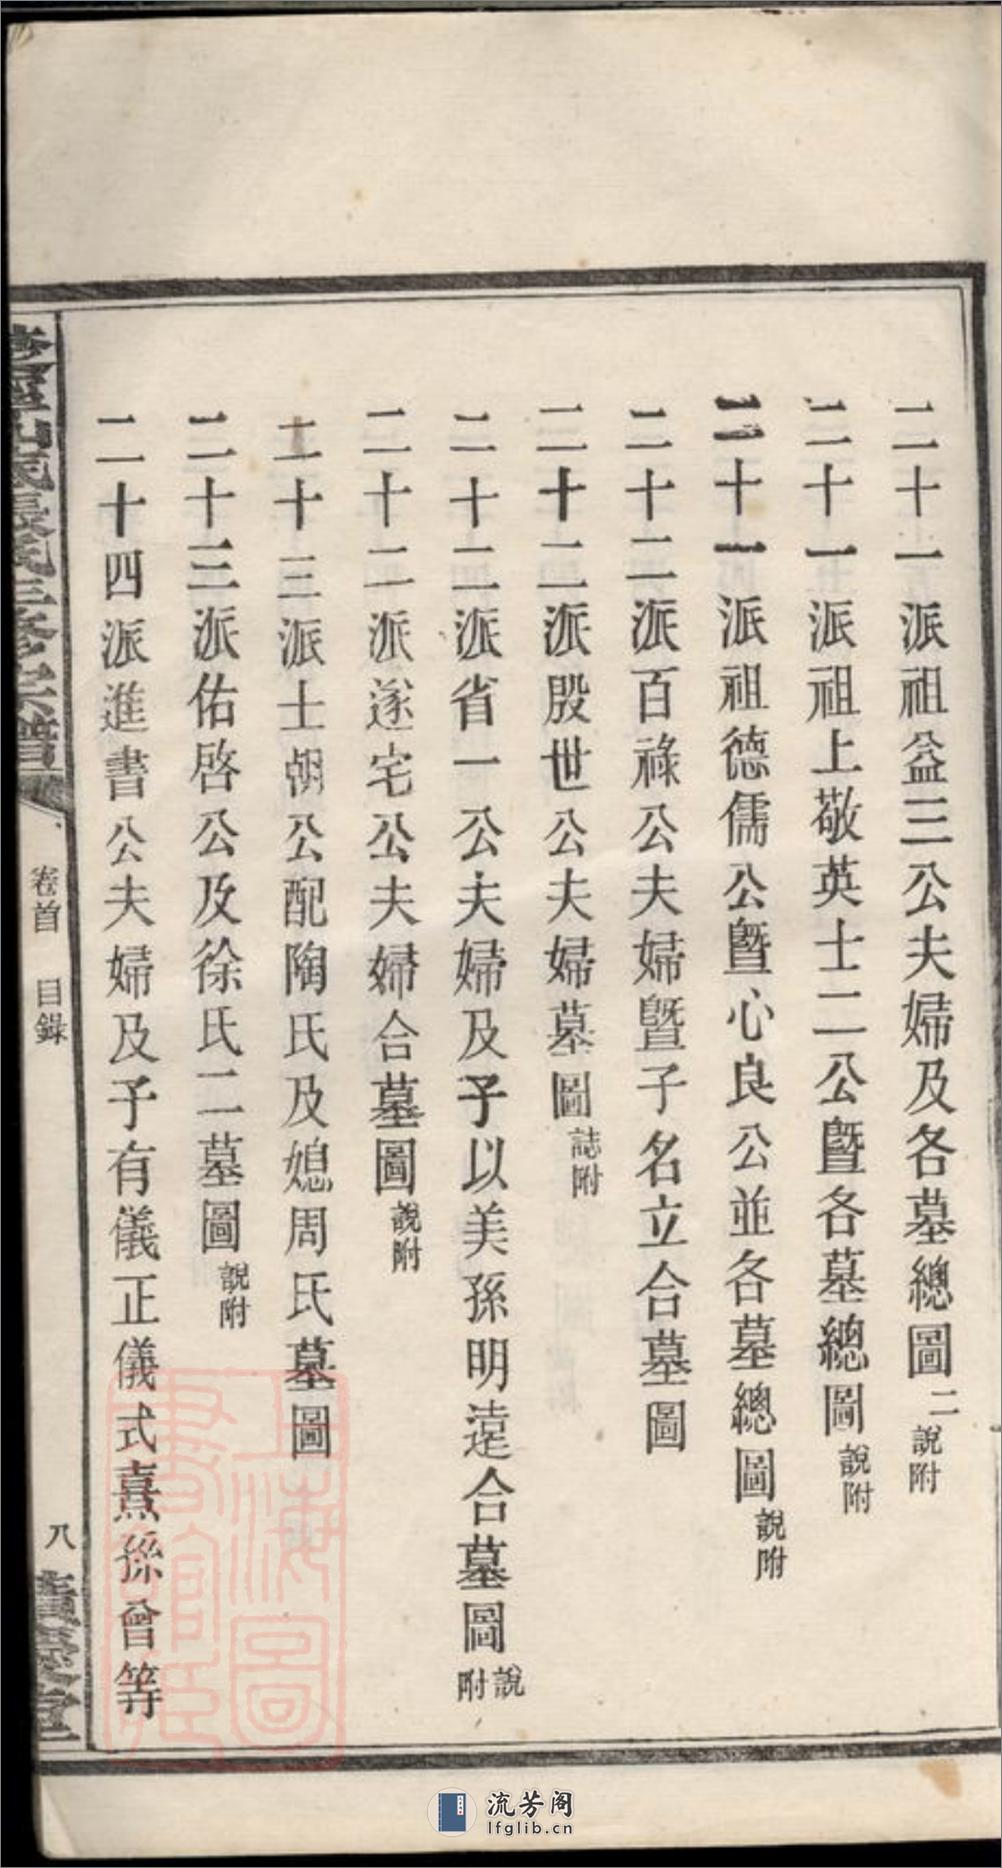 二十一派祖益三公夫婦及各墓總圖二說附
二十一派祖上敬英士二公暨各墓總圖說附
二十一派祖德儒公暨心良公並各墓總圖說附
二十二派百祿公夫婦暨子名立合墓圖
二十二派殷世公夫婦墓圖誌附
二十二派省一公夫婦及予以美孫明遠合墓圖說附
二十二派遂宅公夫婦合墓圖說附
二十三派士朝公配陶氏及媳周氏墓圖
二十三派佑啓公及徐氏二墓圖說附
二十四派進書公夫婦及予有儀正儀式熹孫曾等
張氏三修宗譜
卷首 目錄
八
堂
上海圖書館藏
流芳阁
lfglib.cn